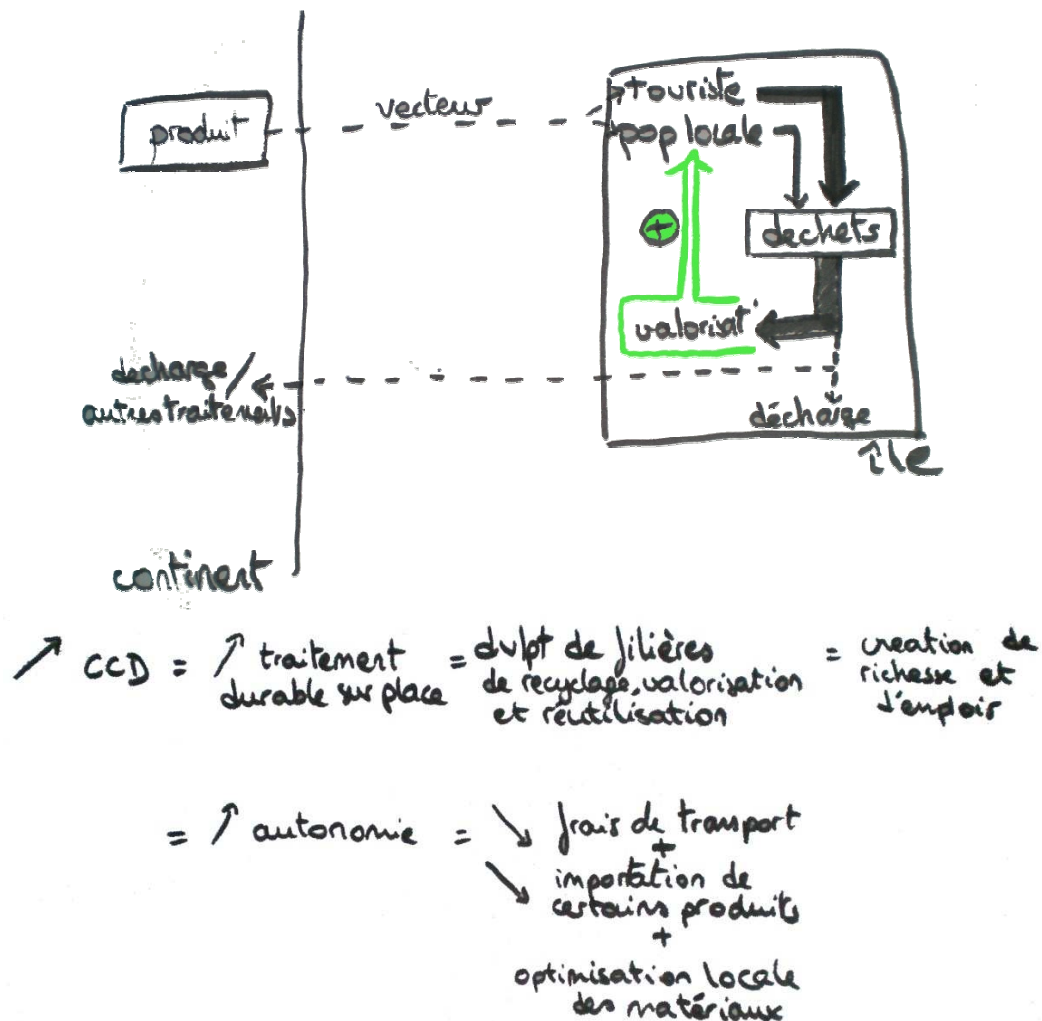 produit
vecteur
touriste
pop locale
+
dechets
valorisat°
decharge/
autres traitements
décharge
île
continent
↗ CCD = ↗ traitement
durable sur place
= dvlpt de filières
de recyclage, valorisation
et réutilisation
= creation de
richesse et
d'emplois
= ↗ autonomie = ↘ frais de transport
+
↘ importation de
certains produits
+
optimisation locale
des matériaux